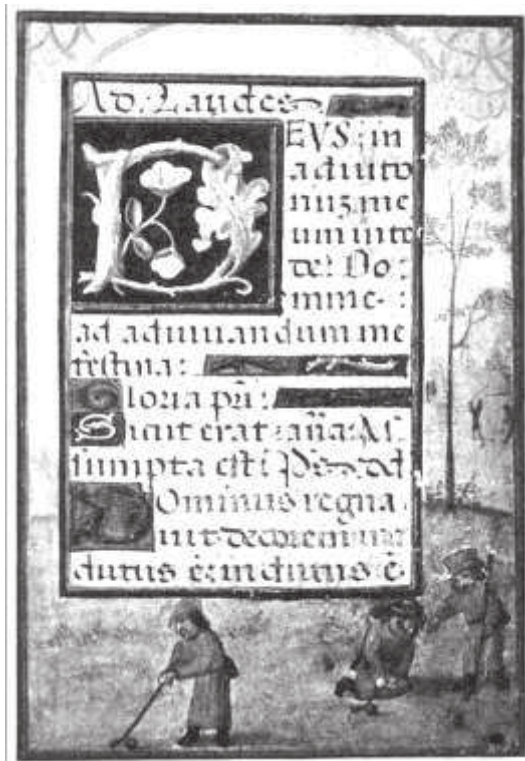 Ad. Laudes
DEVS: in
adiuto
niuz me
um inte
de: Do:
mine:
ad adiuuandum me
festina:
Gloria pri:
Sicut erat: aña: As
sumpta est i
Dominus regna
uit decorem in
dutus é: indutus é